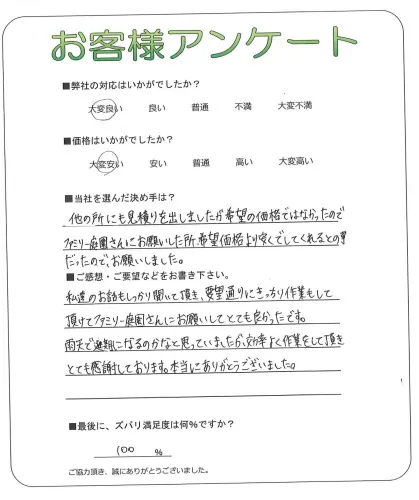 お客様アンケート
■弊社の対応はいかがでしたか?
大変良い 良い 普通 不満 大変不満
■価格はいかがでしたか?
大変安い 安い 普通 高い 大変高い
■当社を選んだ決め手は?
他の所にも見積りを出しましたが希望の価格ではなかったので
ファミリー庭園さんにお願いした所希望価格より安くでしてくれるとの事
だったので、お願いしました。
■ご感想・ご要望などをお書き下さい。
私達のお話もしっかり聞いて頂き、要望通りにきっちり作業もして
頂けてファミリー庭園さんにお願いしてとても良かったです。
雨天で延期になるのかなと思っていましたが、効率よく作業をして頂き
とても感謝しております。本当にありがとうございました。
■最後に、ズバリ満足度は何%ですか?
100 %
ご協力頂き、誠にありがとうございました。